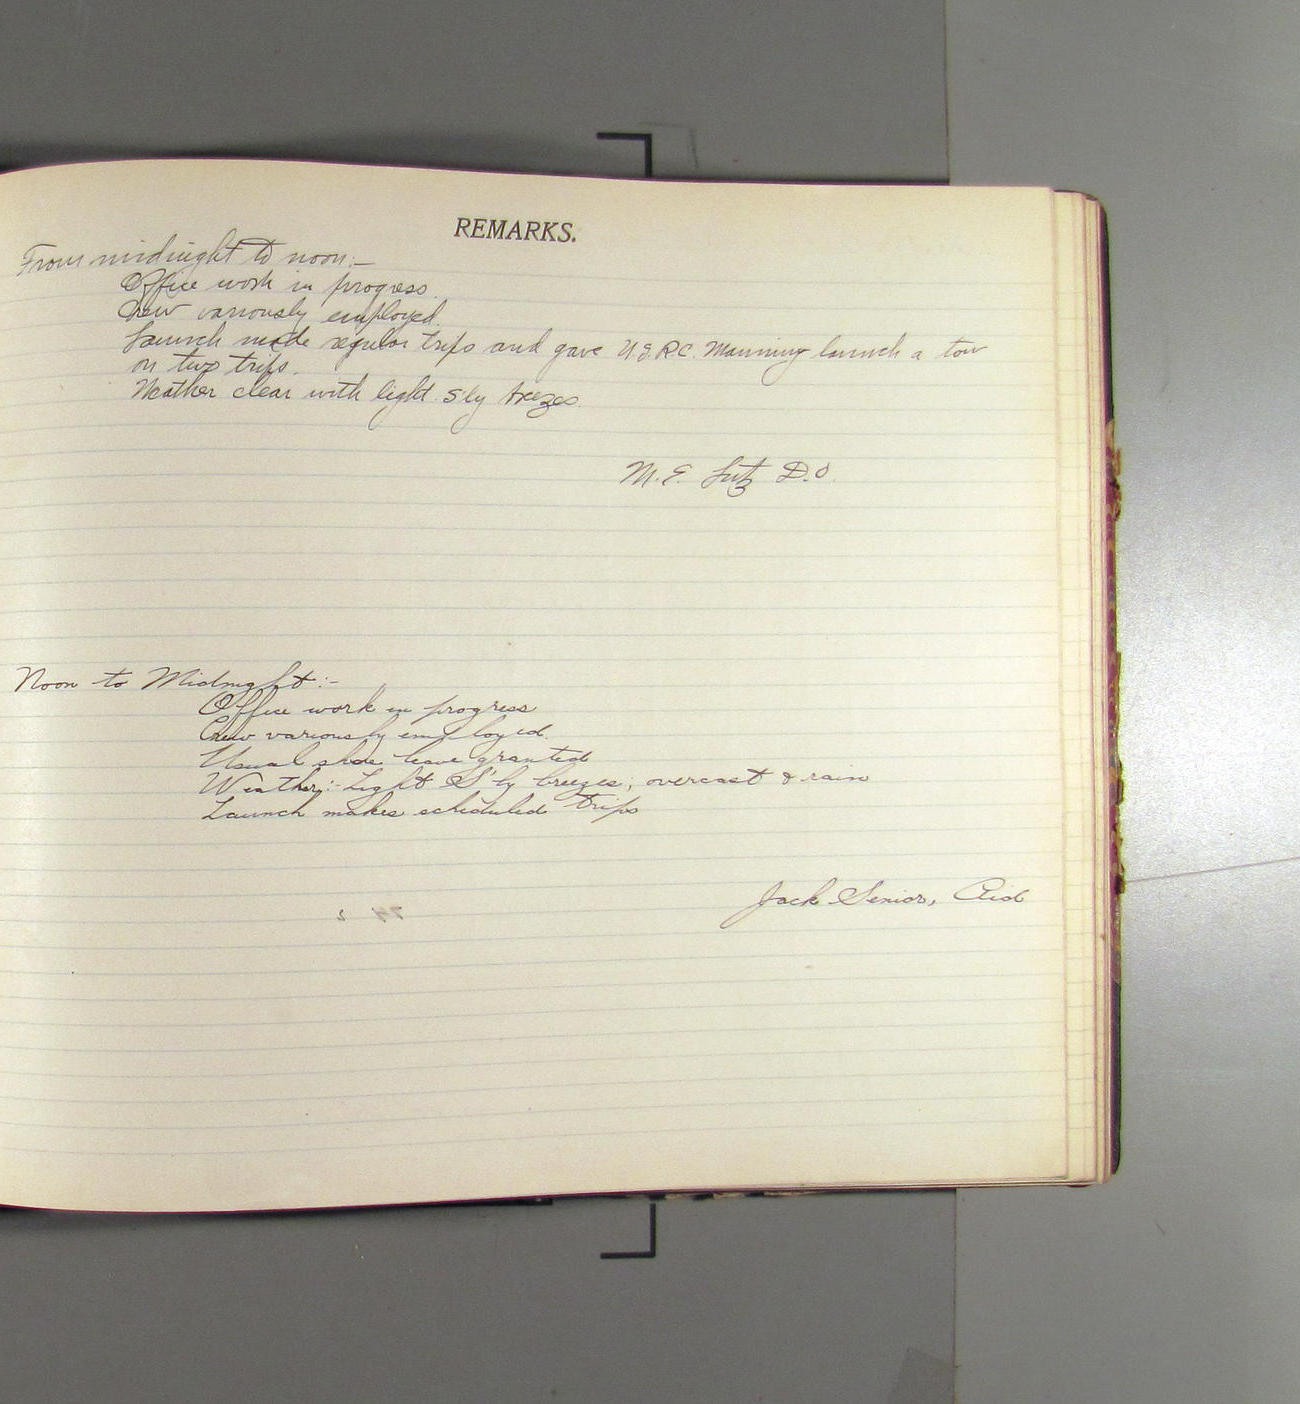 REMARKS.
From midnight to noon:-
Office work in progress.
Crew variously employed.
Launch made regular trips and gave U.S.R.C. Manning launch a tow
on two trips.
Weather clear with light S'ly breezes.
M. E. Lutz D.O.
Noon to Midnight:-
Office work in progress
Crew variously employed.
Usual shore leave granted
Weather:- Light S'ly breezes; overcast & rain
Launch makes scheduled trips
Jack Senior, Aid